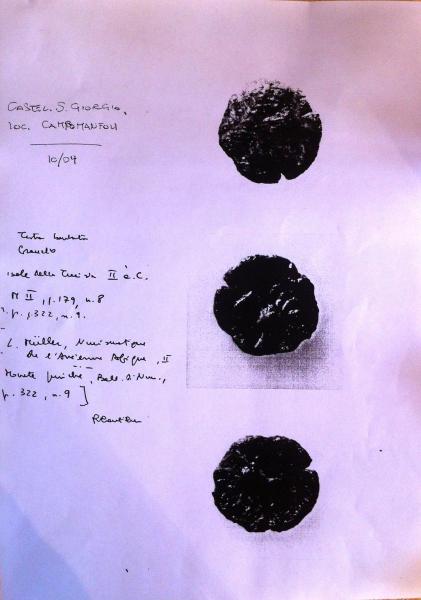 CASTEL S. GIORGIO,
LOC. CAMPOMANFOLI
10/04
Testa barbata
isole della II a.C.
M II, p. 179, n. 8
p. 322, n. 9.
L. Müller, Numismatique
De l'Ancienne Afrique, II
Monete puniche, Boll. di Num.,
p. 322, n. 9]